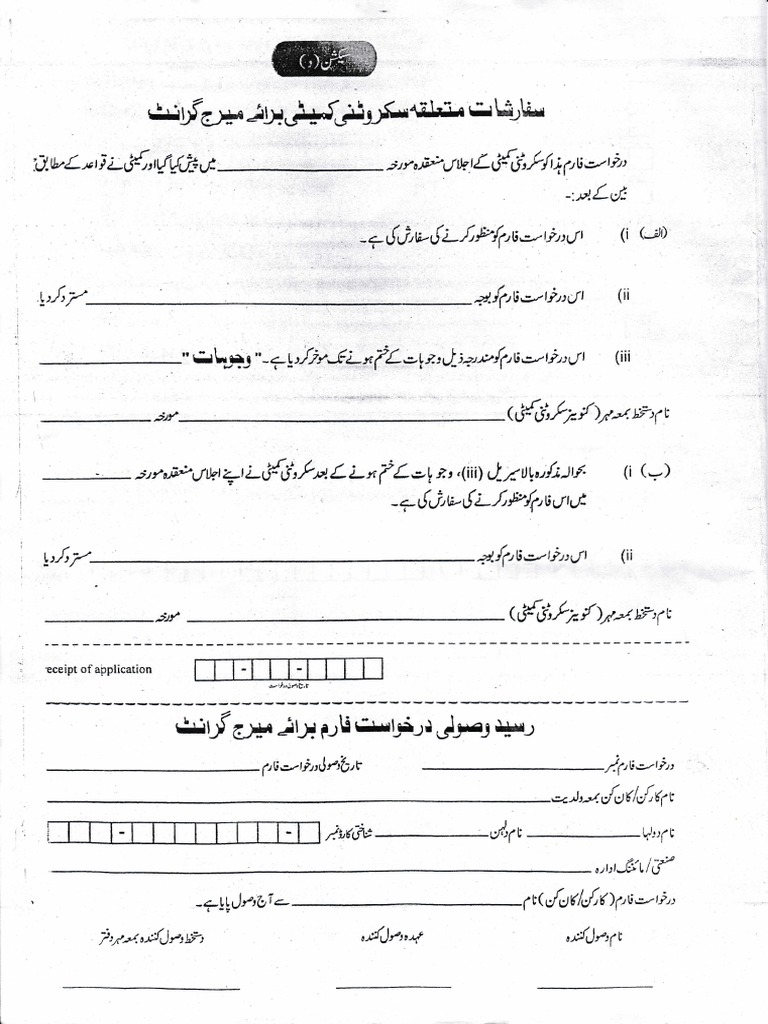 سیکشن (د)
سفارشات متعلقہ سکروٹنی کمیٹی برائے میرج گرانٹ
درخواست فارم ہذا کو سکروٹنی کمیٹی کے اجلاس منعقدہ مورخہ ____________ میں پیش کیا گیا اور کمیٹی نے قواعد کے مطابق
بین کے بعد:-
(الف) i) اس درخواست فارم کو منظور کرنے کی سفارش کی ہے۔
ii) اس درخواست فارم کو بوجہ ____________ مسترد کر دیا
iii) اس درخواست فارم کو مندرجہ ذیل وجوہات کے ختم ہونے تک موخر کر دیا ہے۔ "وجوہات" ____________
نام دستخط بمعہ مہر (کنوینر سکروٹنی کمیٹی) ____________ مورخہ ____________
(ب) i) بحوالہ مذکورہ بالا سیریل (iii)، وجوہات کے ختم ہونے کے بعد سکروٹنی کمیٹی نے اپنے اجلاس منعقدہ مورخہ ____________
میں اس فارم کو منظور کرنے کی سفارش کی ہے۔
ii) اس درخواست فارم کو بوجہ ____________ مسترد کر دیا
نام دستخط بمعہ مہر (کنوینر سکروٹنی کمیٹی) ____________ مورخہ ____________
receipt of application - -
تاریخ وصولی درخواست
رسید وصولی درخواست فارم برائے میرج گرانٹ
درخواست فارم نمبر ____________ تاریخ وصولی درخواست فارم ____________
نام کارکن/کان کن بمعہ ولدیت ____________
نام دولہا ____________ نام دلہن ____________ شناختی کارڈ نمبر - -
صنعتی/مائننگ ادارہ ____________
درخواست فارم (کارکن/کان کن) نام ____________ سے آج وصول پایا ہے۔
نام وصول کنندہ عہدہ وصول کنندہ دستخط وصول کنندہ بمعہ مہر دفتر